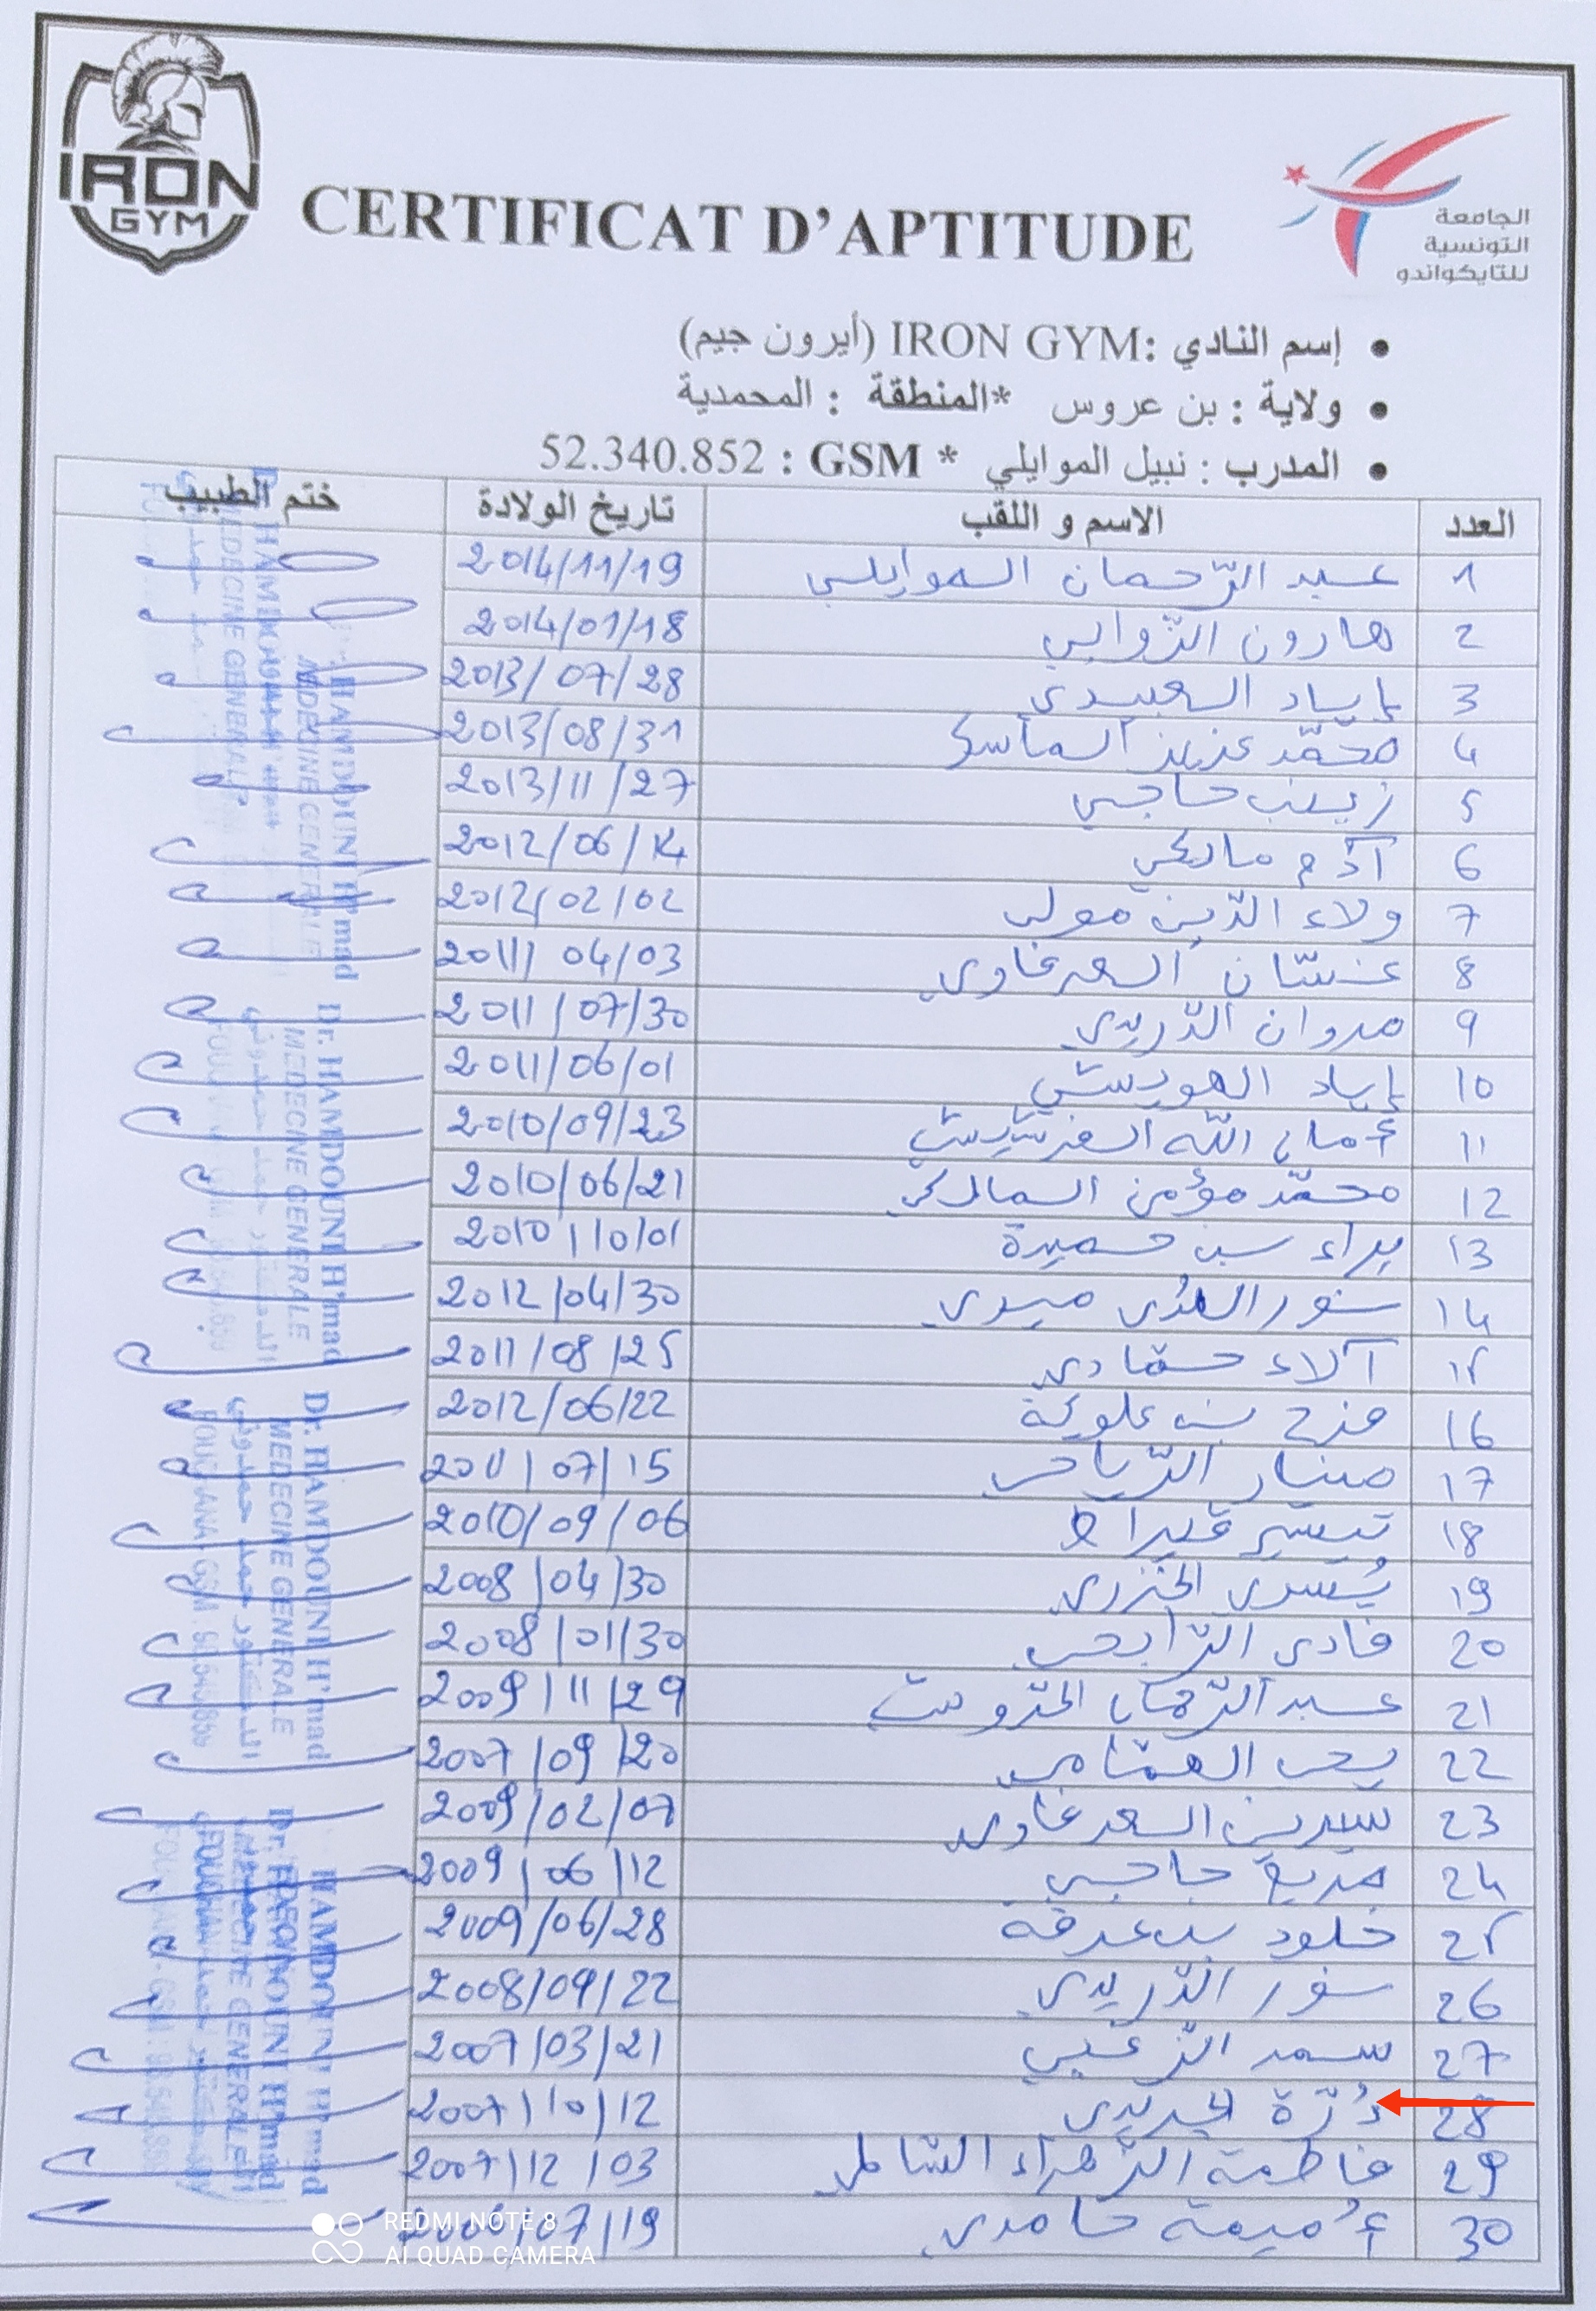 IRON
GYM
CERTIFICAT D'APTITUDE
الجامعة
التونسية
للتايكواندو
إسم النادي :IRON GYM (أيرون جيم)
ولاية : بن عروس *المنطقة : المحمدية
المدرب : نبيل الموايلي * GSM : 52.340.852
العدد الاسم و اللقب تاريخ الولادة ختم الطبيب
1 عبد الرّحمان الموايلي 2014/11/19
2 هارون الزّوابي 2014/01/18
3 إياد العبيدي 2013/07/28
4 محمّد عزيز الماسي 2013/08/31
5 زينب حاجي 2013/11/27
6 آدم مالكي 2012/06/14
7 ولاء الدّين مولى 2012/02/02
8 غسّان السعدغاوي 2011/04/03
9 مروان الدّريدي 2011/07/30
10 إياد الهويشي 2011/06/01
11 أمان الله الفرشيشي 2010/09/23
12 محمّد مؤمن المالكي 2010/06/21
13 براء بن حميدة 2010/10/01
14 نور الهدى ميدي 2012/04/30
15 آلاء حمّادي 2011/08/25
16 فرح بن علوية 2012/06/22
17 منار الرّياحي 2011/07/15
18 تيسير قيراط 2010/09/06
19 يُسرى الخزري 2008/04/30
20 فادي الرّابحي 2008/01/30
21 عبد الرّحمان 2009/11/29
22 يحي الهمّامي 2007/09/20
23 سيرين السعدغاوي 2009/02/07
24 مريم حاجي 2009/06/12
25 خلود بن عرفة 2009/06/28
26 نور الدّريدي 2008/09/22
27 سمر الزّغبي 2007/03/21
28 دُرّة الجريدي 2007/10/12
29 فاطمة الزّهراء الشّاملي 2007/12/03
30 أُميمة حامدي 07/19
Dr. HAMDOUNI H'mad
MEDECINE GENERALE
Dr. HAMDOUNI H'mad
MEDECINE GENERALE
الدكتور حمد حمدوني
Dr. HAMDOUNI H'mad
MEDECINE GENERALE
الدكتور حمد حمدوني
FOUCHANA - GSM
REDMI NOTE 8
AI QUAD CAMERA